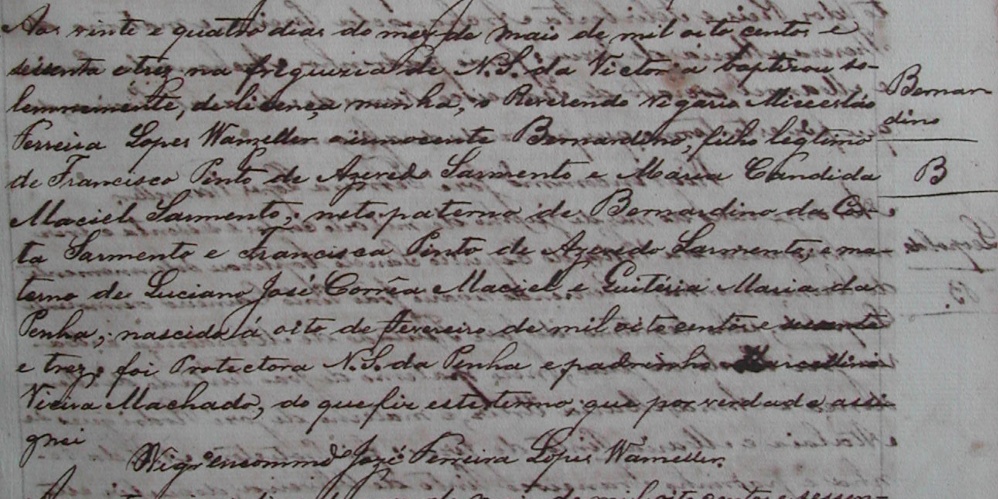 Aos vinte e quatro dias do mez de Maio de mil oito centos e
sessenta e trez na freguezia de N. S. da Victoria baptizou so-
lemnemente, de licença minha, o Reverendo Vigario Miceslão
Ferreira Lopes Wanzeller o innocente Bernardino, filho legitimo
de Francisco Pinto de Azeredo Sarmento e Maria Candida
Maciel Sarmento; neto paterno de Bernardino da Cos-
ta Sarmento e Francisca Pinto de Azeredo Sarmento; e ma-
terno de Luciano José Corrêa Maciel, e Guiteria Maria da
Penha; nascido á oito de Fevereiro de mil oito centos e sessenta
e trez; foi Protectora N. S. da Penha e padrinho Marcellino
Vieira Machado, do que fiz este termo, que por verdade assi
gnei
Vigr.º encommd.º José Ferreira Lopes Wanzeller.
Bernar-
dino
B